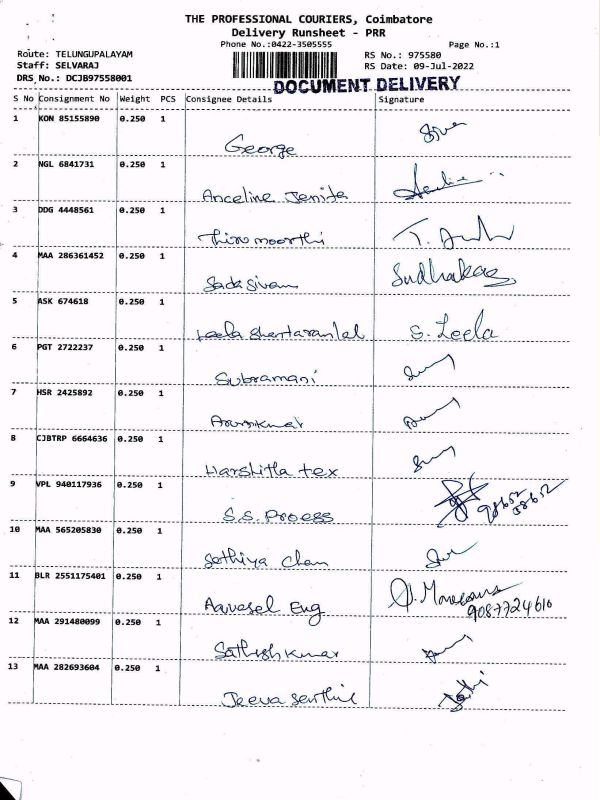 THE PROFESSIONAL COURIERS, Coimbatore
Delivery Runsheet - PRR
Phone No.:0422-3505555 Page No.:1
Route: TELUNGUPALAYAM RS No.: 975580
Staff: SELVARAJ RS Date: 09-Jul-2022
DRS No.: DCJB97558001
DOCUMENT DELIVERY
S No Consignment No Weight PCS Consignee Details Signature
1 KON 85155890 0.250 1
George
2 NGL 6841731 0.250 1
Anceline Jenifa
3 DDG 4448561 0.250 1
Thiromoorthi
4 MAA 286361452 0.250 1 Sudhakar
Sadasivam
5 ASK 674618 0.250 1
Leela S. Leela
6 PGT 2722237 0.250 1
Subramani
7 HSR 2425892 0.250 1
Arunkumar
8 CJBTRP 6664636 0.250 1
Harshitla tex
9 VPL 940117936 0.250 1
S.S. Proess
10 MAA 565205830 0.250 1
Sathiya
11 BLR 2551175401 0.250 1
Aarvesel Eng 9087724610
12 MAA 291480099 0.250 1
Sathishkumar
13 MAA 282693604 0.250 1
Jeeva Senthil